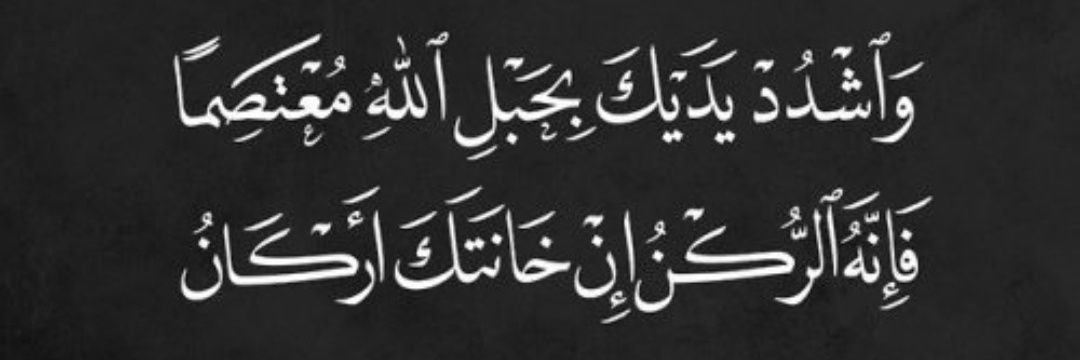 وَٱشْدُدْ يَدَيْكَ بِحَبْلِ ٱللهِ مُعْتَصِمًا
فَإِنَّهُ ٱلرُّكْنُ إِنْ خَانَتَكَ أَرْكَانُ